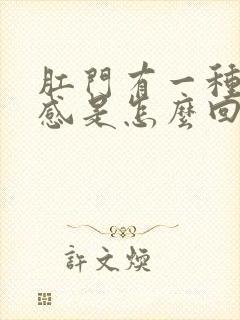 肛門有一種
感是怎麼回
許文煥